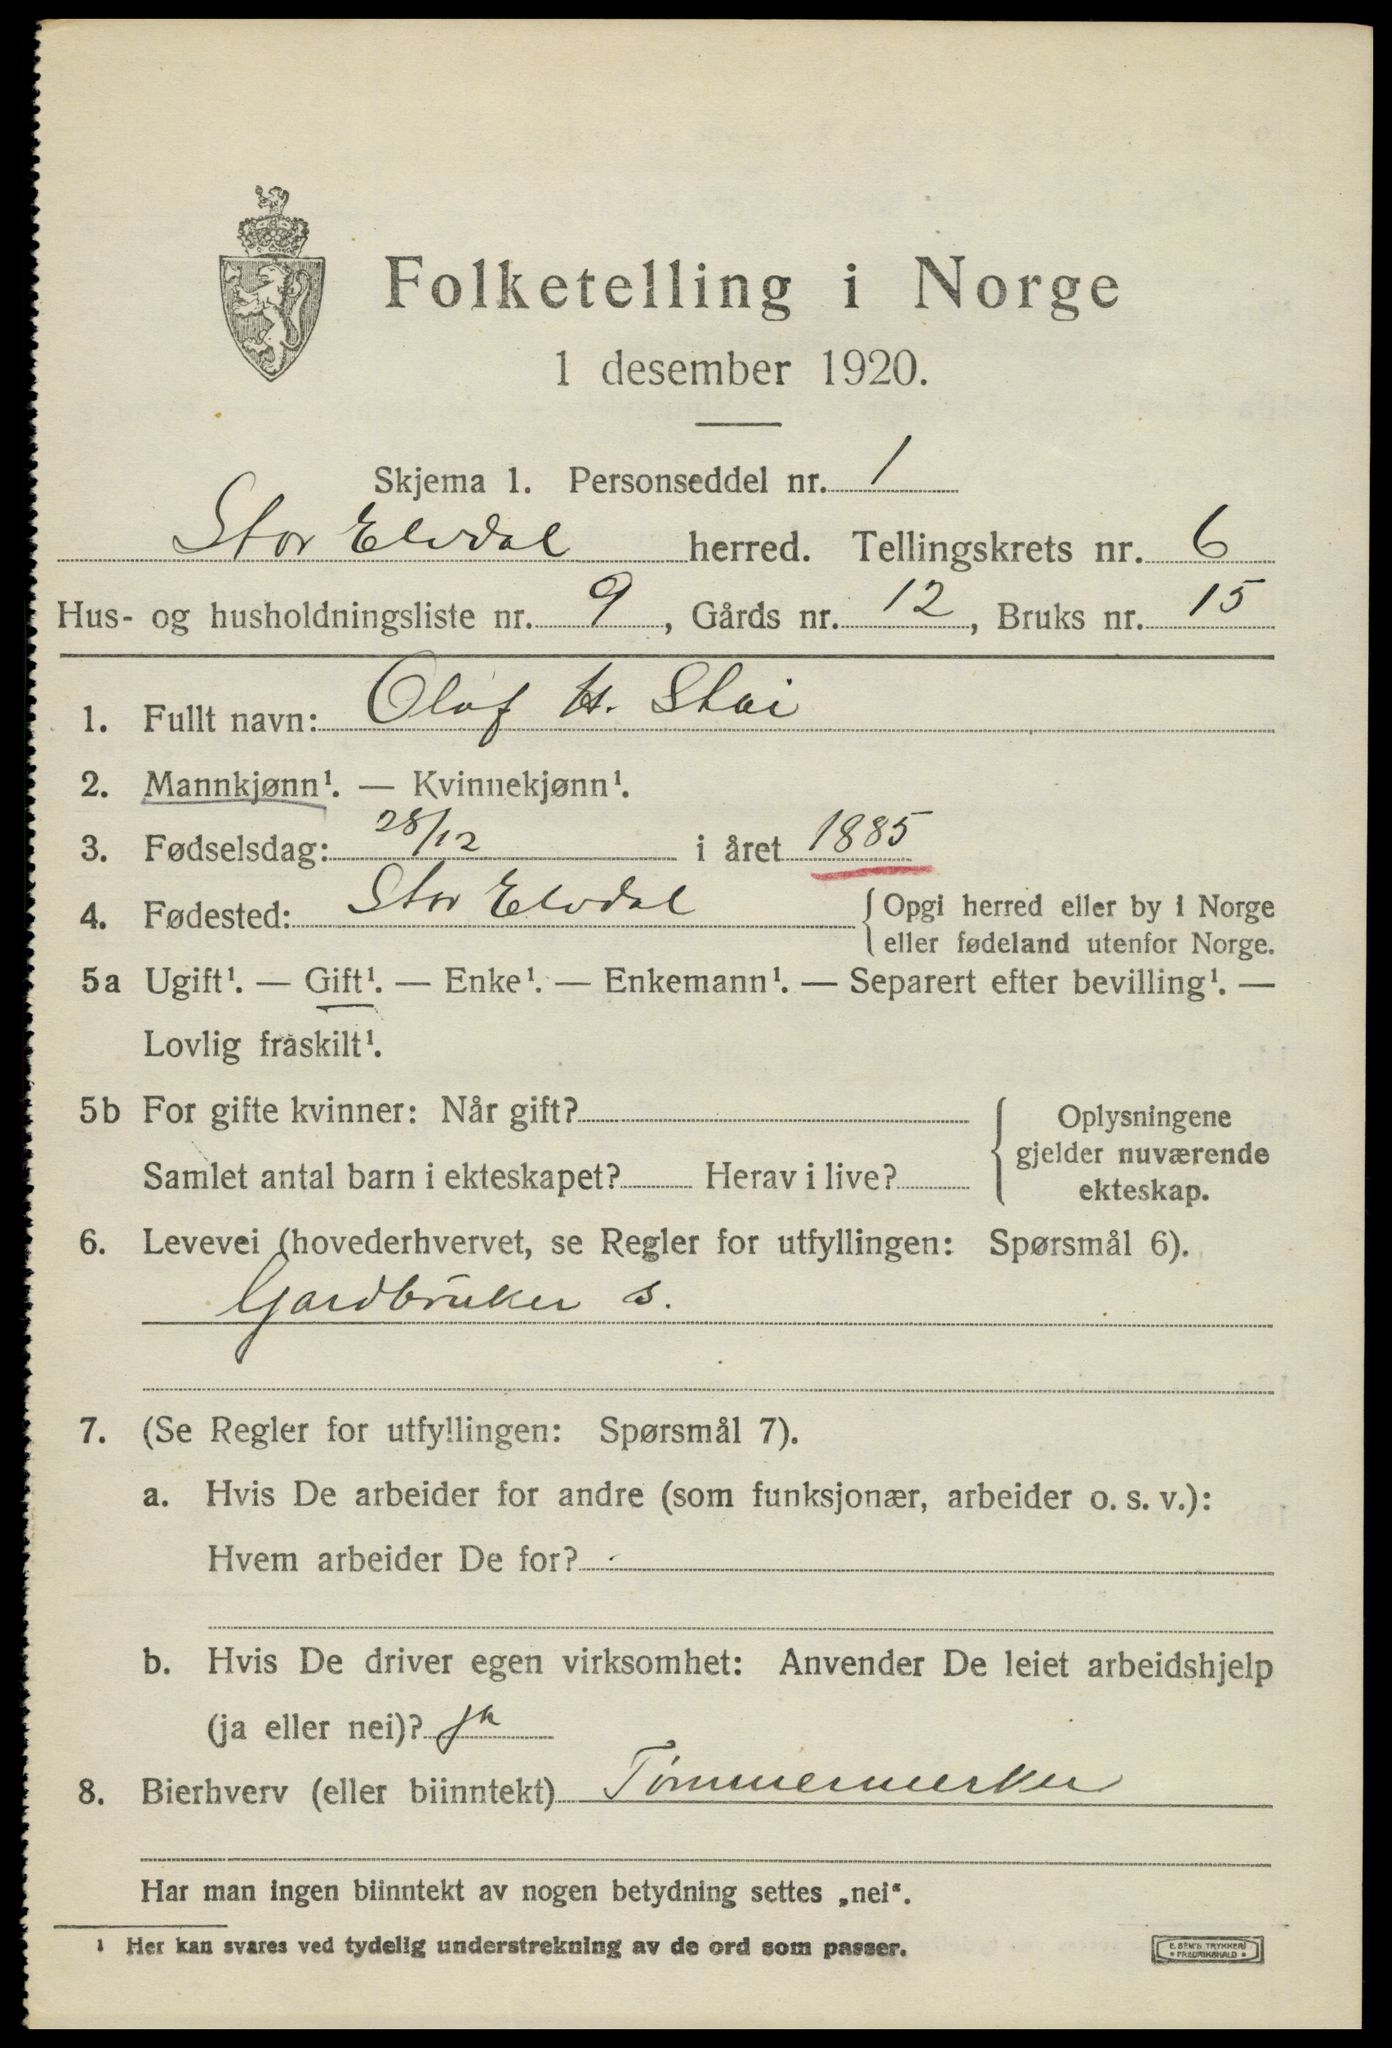 Folketelling i Norge
1 desember 1920.
Skjema 1. Personseddel nr. 1
Stor Elvdal herred. Tellingskrets nr. 6
Hus- og husholdningsliste nr. 9, Gårds nr. 12, Bruks nr. 15
1. Fullt navn: Olaf H. Stai
2. Mannkjønn¹. — Kvinnekjønn¹.
3. Fødselsdag: 28/12 i året 1885
4. Fødested: Stor Elvdal { Opgi herred eller by i Norge
eller fødeland utenfor Norge.
5a Ugift¹. — Gift¹. — Enke¹. — Enkemann¹. — Separert efter bevilling¹. —
Lovlig fraskilt¹.
5b For gifte kvinner: Når gift?
Samlet antal barn i ekteskapet? Herav i live?
Oplysningene
gjelder nuværende
ekteskap.
6. Levevei (hovederhvervet, se Regler for utfyllingen: Spørsmål 6).
Gardbruker s.
7. (Se Regler for utfyllingen: Spørsmål 7).
a. Hvis De arbeider for andre (som funksjonær, arbeider o. s. v.):
Hvem arbeider De for?
b. Hvis De driver egen virksomhet: Anvender De leiet arbeidshjelp
(ja eller nei)? ja
8. Bierhverv (eller biinntekt) Tømmermerker
Har man ingen biinntekt av nogen betydning settes „nei“.
¹ Her kan svares ved tydelig understrekning av de ord som passer.
E. SEM'S TRYKKERI
• FREDRIKSHALD •